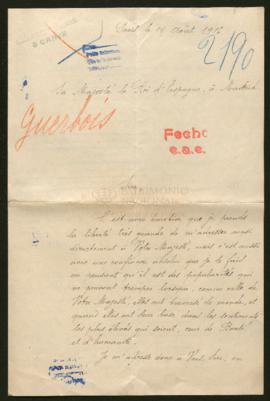 Niort le 19 Août 1916
2190
Sa Majesté le Roi d'Espagne, à Madrid
Guerbois
Fecho
e.a.e.
PATRIMONIO
NACIONAL
C'est avec émotion que je prends
la liberté très grande de m'adresser aussi
directement à Votre Majesté, mais c'est aussi
avec une confiance absolue que je le fais
en pensant qu'il est des popularités qui
ne peuvent tromper lorsque, comme celle de
Votre Majesté, elles ont traversé le monde, et
quand elles ont leur base dans les sentiments
les plus élevés qui soient, ceux de Bonté
et d'humanité.
Je m'adresse donc à Vous, Sire, en